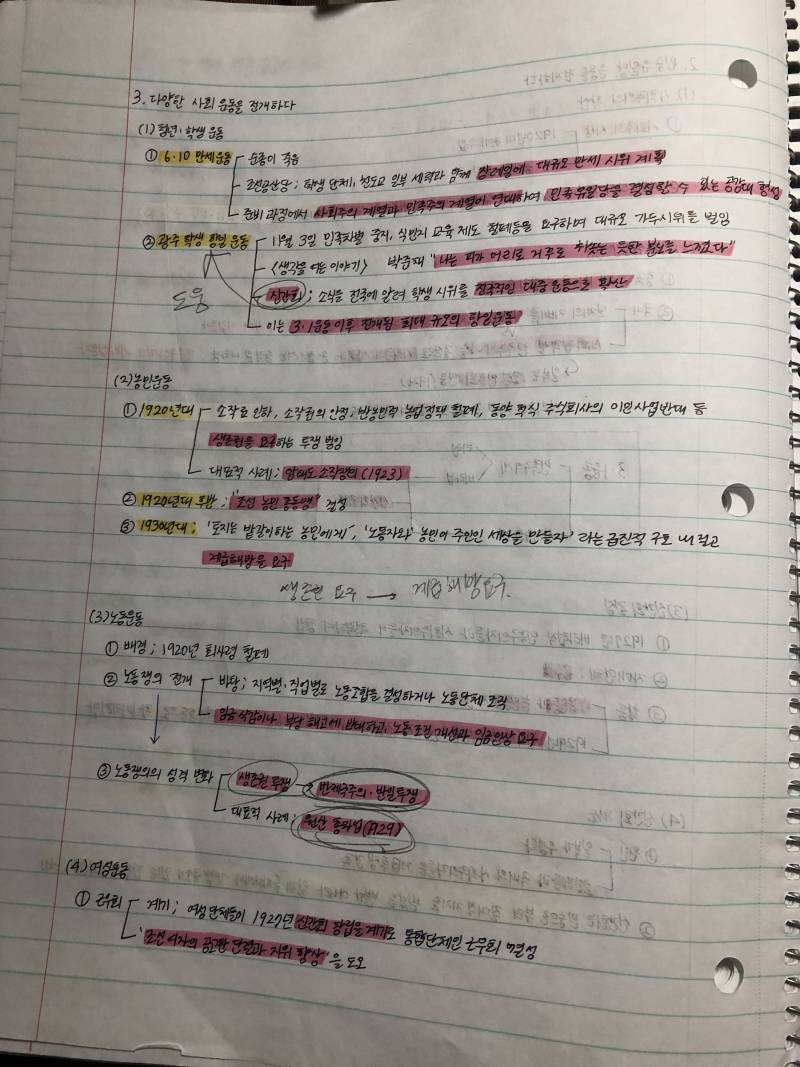 3. 다양한 사회 운동을 전개하다
(1) 청년·학생 운동
① 6·10 만세운동 - 순종이 죽음
- 조선공산당; 학생 단체, 천도교 일부 세력과 함께 장례일에 대규모 만세 시위 계획
- 준비 과정에서 사회주의 계열과 민족주의 계열이 연대하여 민족유일당을 결성할 수 있는 공감대 형성
② 광주 학생 항일 운동 - 11월 3일 민족차별 중지, 식민지 교육 제도 철폐등을 요구하며 대규모 가두시위를 벌임
- <생각을 여는 이야기> 박준채 "나는 피가 머리로 거꾸로 치솟는 듯한 분노를 느꼈다"
도움
- 신간회; 소식을 전국에 알려 학생 시위를 전국적인 대중 운동으로 확산
- 이는 3·1운동 이후 전개된 최대 규모의 항일운동
(2) 농민운동
① 1920년대 - 소작료 인하, 소작권의 안정, 반농민적 농업정책 철폐, 동양 척식 주식회사의 이민사업반대 등
생존권을 요구하는 투쟁 벌임
- 대표적 사례; 암태도 소작쟁의 (1923)
② 1920년대 후반; "조선 농민 총동맹" 결성
③ 1930년대; '토지는 밭갈이하는 농민에게', '노동자와 농민이 주인인 세상을 만들자' 라는 급진적 구호 내 걸고
계급해방을 요구
생존권 요구 → 계급해방요구.
(3) 노동운동
① 배경; 1920년 회사령 철폐
② 노동쟁의 전개 - 바탕; 지역별·직업별로 노동조합을 결성하거나 노동단체 조직
- 임금 삭감이나 부당 해고에 반대하고, 노동 조건 개선과 임금인상 요구
③ 노동쟁의의 성격 변화 - 생존권 투쟁 → 반제국주의·반일투쟁
- 대표적 사례; 원산 총파업(1929)
(4) 여성운동
① 근우회 - 계기; 여성 단체들이 1927년 신간회 창립을 계기로 통합단체인 근우회 결성
- '조선 여자의 공고한 단결과 지위 향상'을 도모